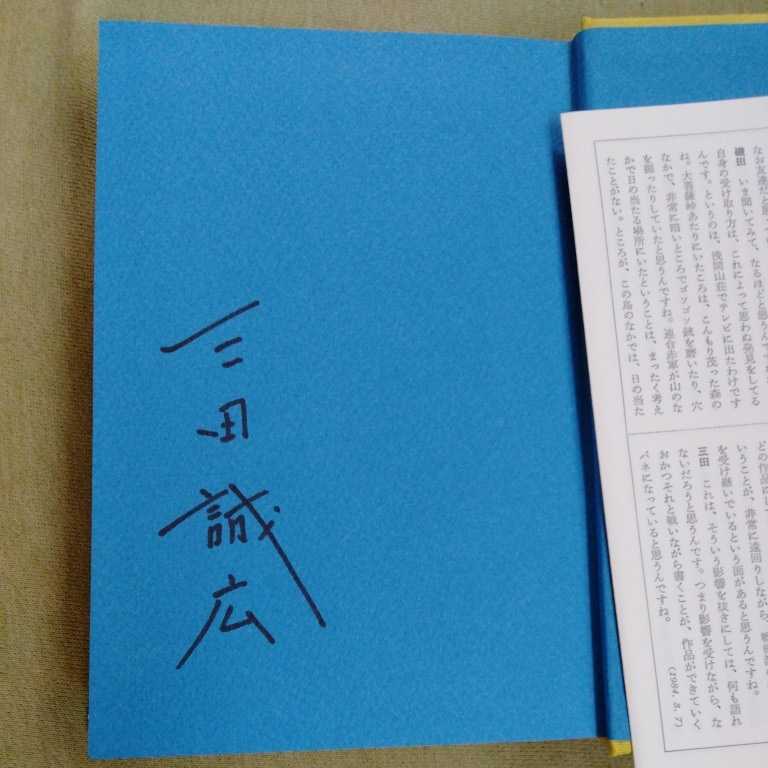 三田誠広
なお友達だと思
磯田　いま聞いてみて、なるほどと思うんで
自身の受け取り方は、これによって思わぬ発見をしてる
んです。というのは、浅間山荘でテレビに出たわけです
ね。大菩薩峠あたりにいたころは、こんもり茂った森の
なかで、非常に暗いところでゴソゴソ銃を磨いたり、穴
を掘ったりしていたと思うんですね。連合赤軍が山のな
かで日の当たる場所にいたということは、まったく考え
たことがない。ところが、この島のなかでは、日の当た
どの作品にし
いうことが、非常に遠回りしながら、
を受け継いでいるという面があると思うんですね。
三田　これは、そういう影響を抜きにしては、何も語れ
ないだろうと思うんです。つまり影響を受けながら、な
おかつそれと戦いながら書くことが、作品ができていく
バネになっていると思うんですね。
（1984.8.7）